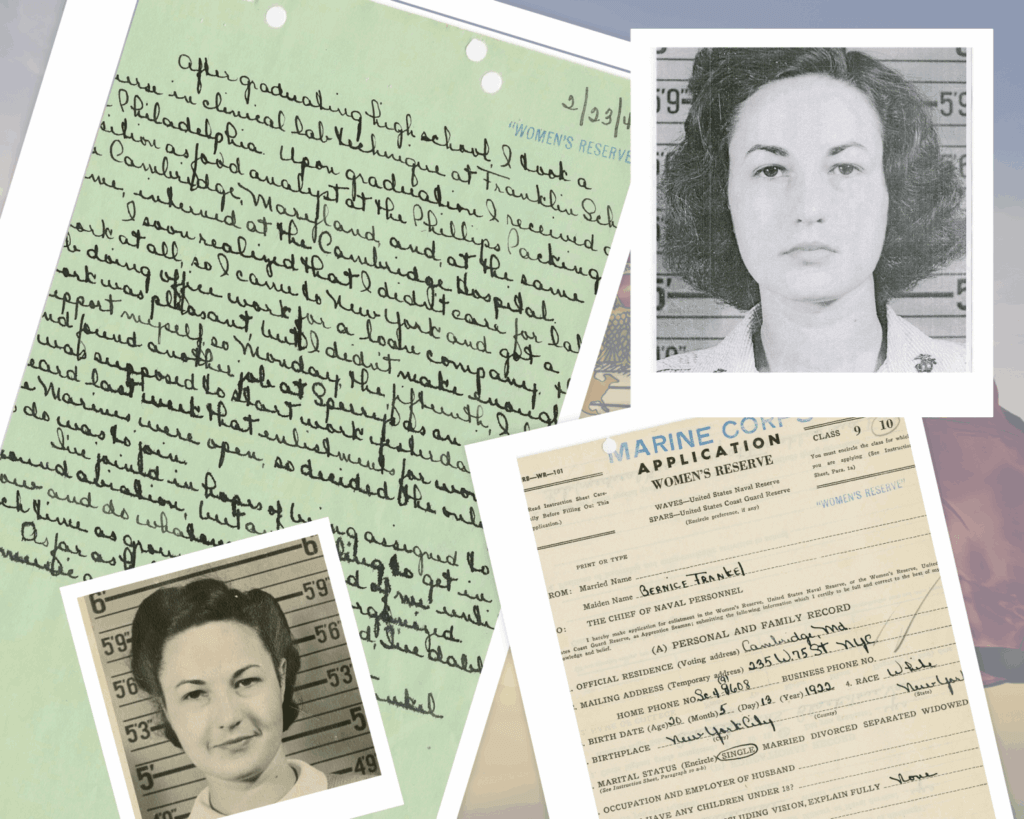 2/23/4
"WOMEN'S RESERVE
After graduating high school, I took a
in clinical lab technique at Franklin Sch
Philadelphia Upon graduation I received
as food analyst at the Phillips Packing
Cambridge, Maryland, and, at the same
interned at the Cambridge Hospital.
I soon realized that I didn't care for lab
work at all, so I came to New York and got a
doing office work for a loan company.
work was pleasant but I didn't make enough
support myself, so Monday, the fifteenth, I
and found another job at Sperry's as an
was supposed to start work yesterday
last week that enlistments for
Marines were open, so decided the only
do was to join.
I've joined in hopes of being assigned to
ground aviation, but
now and do to get in
time as
As far as
of me
5'9
5'9
5'
5
MARINE CORPS
APPLICATION
WOMEN'S RESERVE
CLASS 9 10
You must encircle the class for which
you are applying (See Instruction
Sheet, Para. 1a)
"WOMEN'S RESERVE"
RS—WR—101
Read Instruction Sheet Care-
fully Before Filling Out This
Application.)
WAVES—United States Naval Reserve
SPARS—United States Coast Guard Reserve
(Encircle preference, if any)
PRINT OR TYPE
ROM: Married Name
Maiden Name BERNICE FRANKEL
O: THE CHIEF OF NAVAL PERSONNEL
I hereby make application for enlistment in the Women's Reserve, United States Naval Reserve, or the Women's Reserve, United
States Coast Guard Reserve, as Apprentice Seaman; submitting the following information which I certify to be full and correct to the best of my
knowledge and belief.
(A) PERSONAL AND FAMILY RECORD
OFFICIAL RESIDENCE (Voting address) Cambridge, Md.
MAILING ADDRESS (Temporary address) 235 W. 75 St NYC
HOME PHONE NO. BUSINESS PHONE NO.
BIRTH DATE (Age) 20 (Month) 5 (Day) 13 (Year) 1922 4. RACE White
BIRTHPLACE New York City New York
(City) (County) (State)
MARITAL STATUS (Encircle) SINGLE MARRIED DIVORCED SEPARATED WIDOWED
(See Instruction Sheet, Paragraph
OCCUPATION AND EMPLOYER OF HUSBAND
HAVE ANY CHILDREN UNDER 18?
VISION, EXPLAIN FULLY None
6'
6
5'9
5'9
5'6
5'6
5'3
5'3
5'
5
4'9